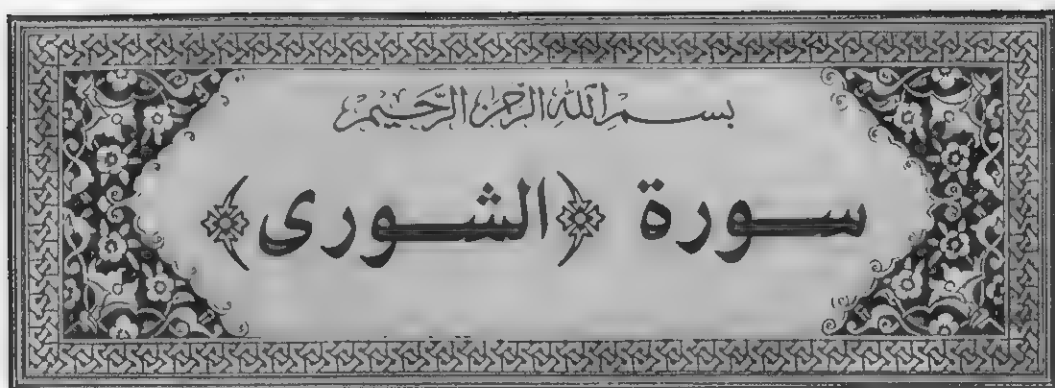 بسم الله الرحمن الرحيم
سورة ﴿الشورى﴾